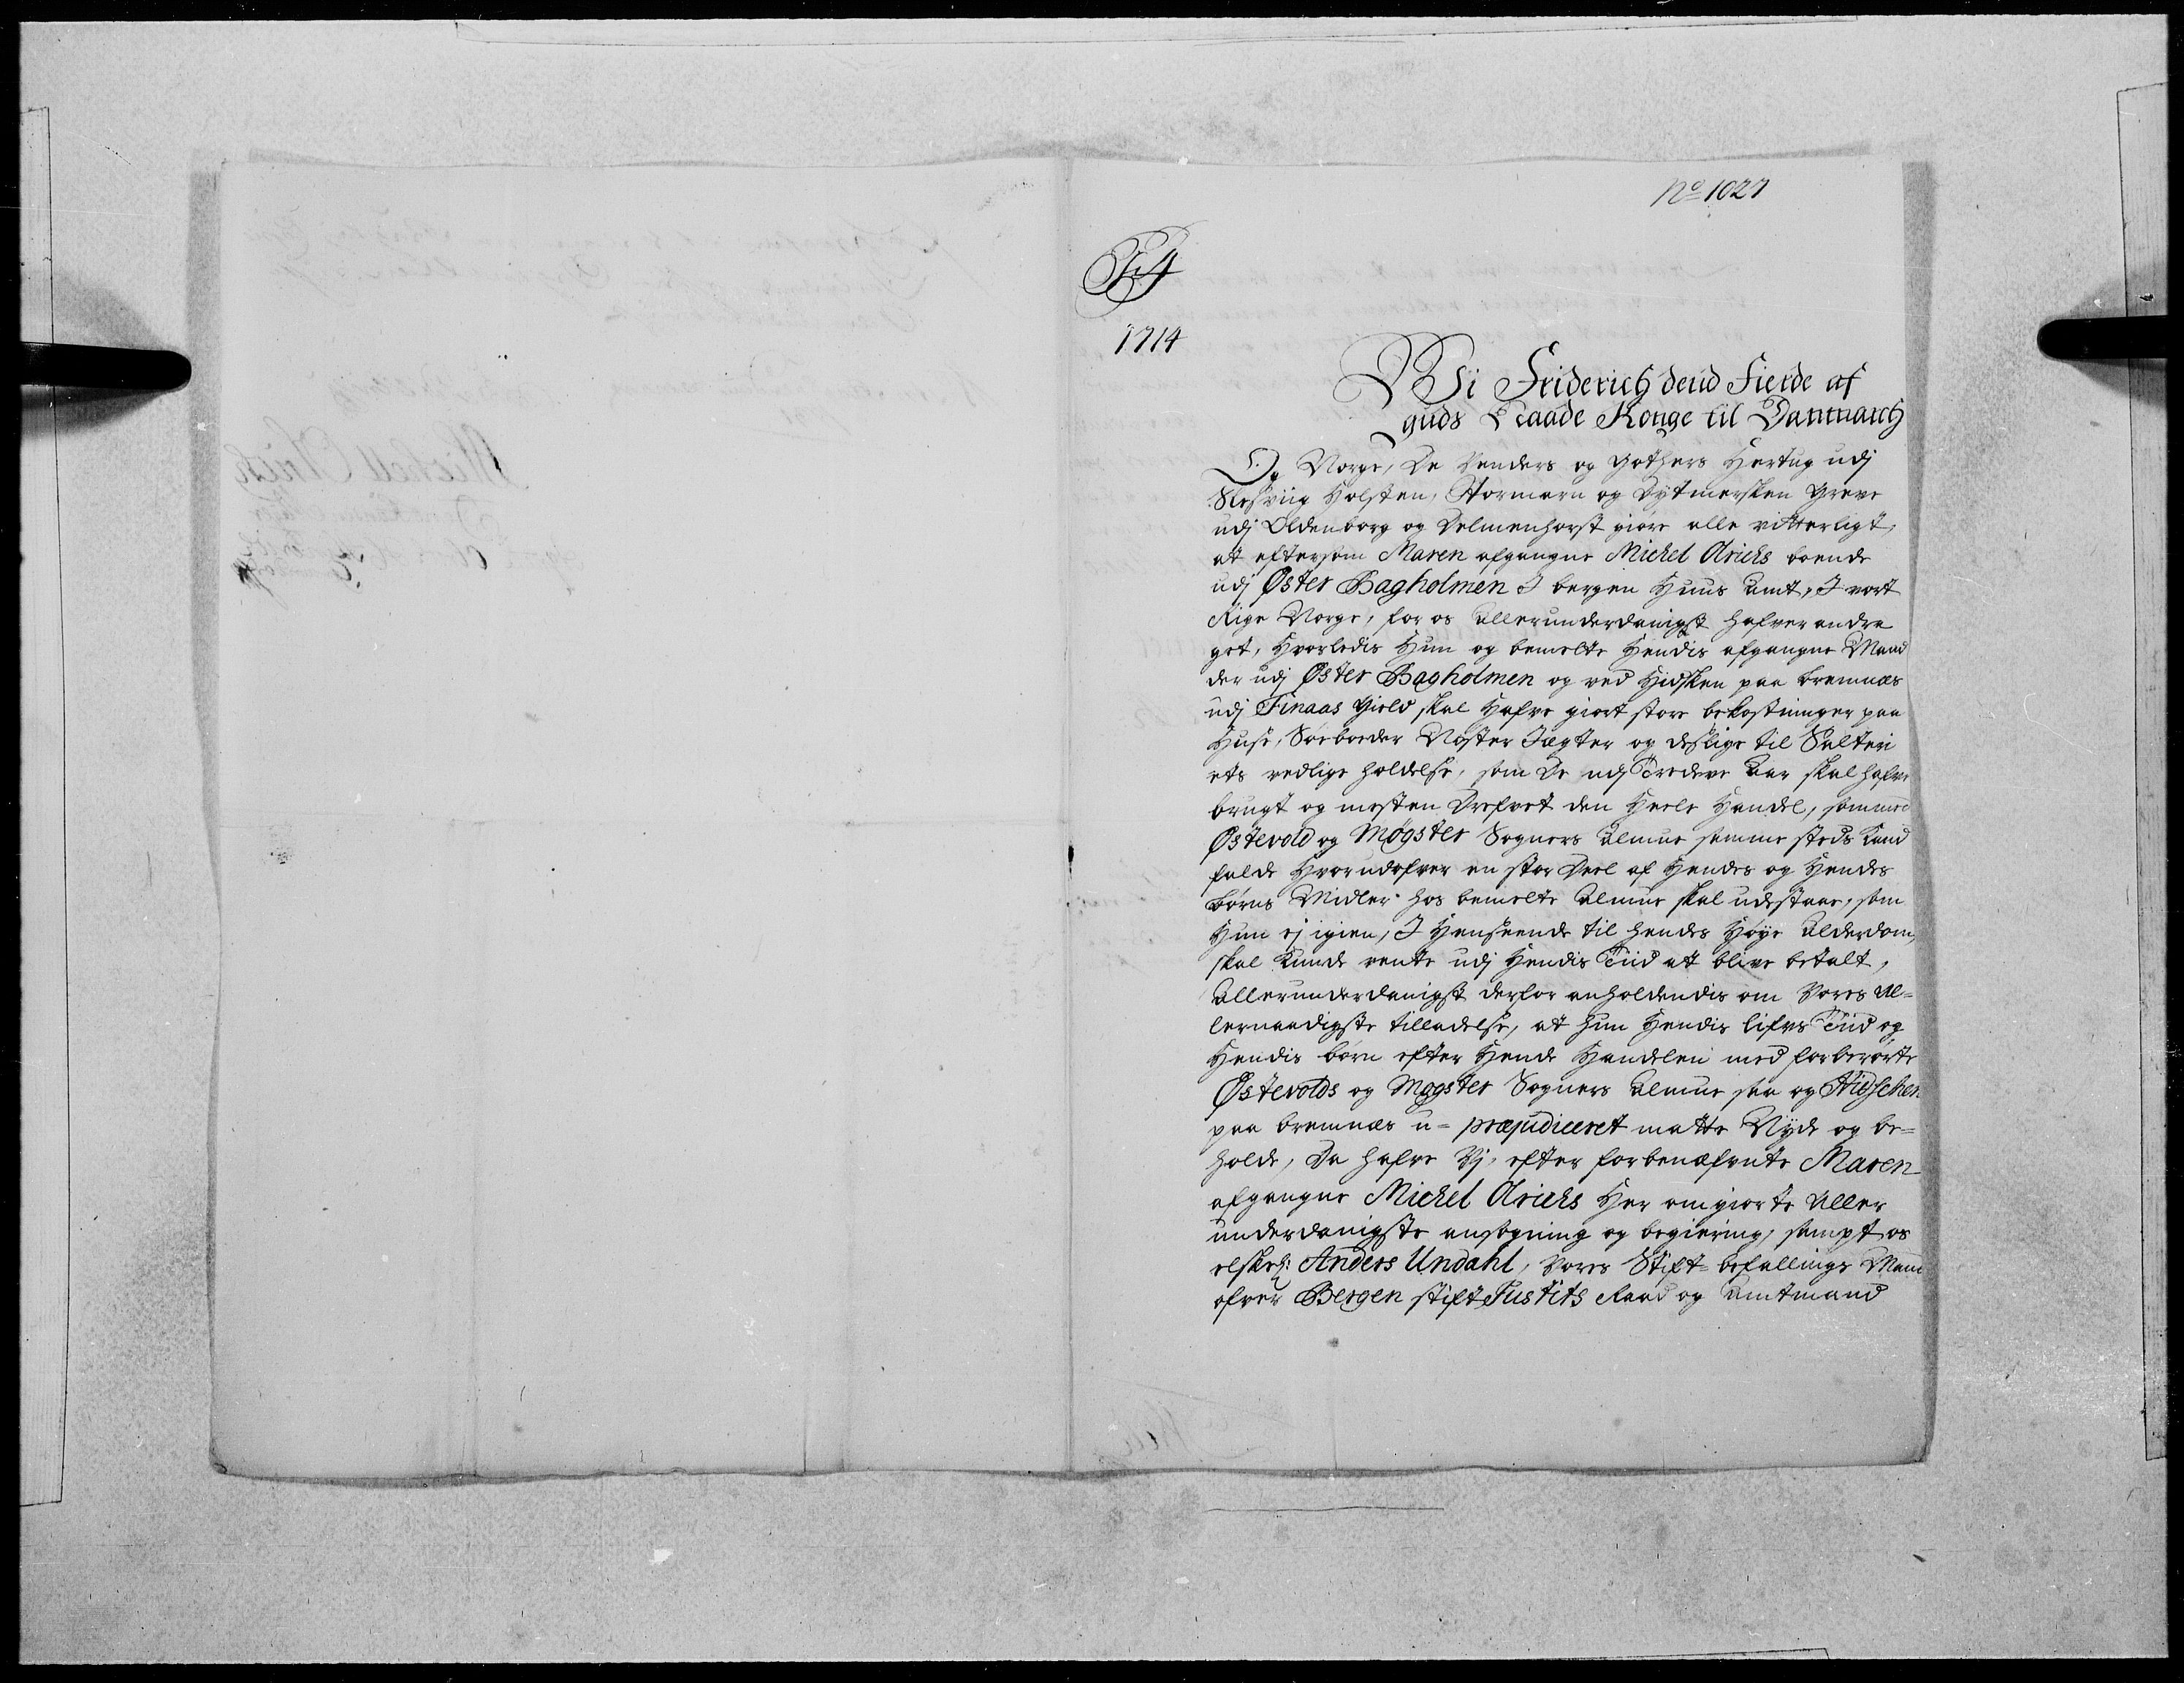 No 1027
F4
1714
Wi Friderich dend Fierde af
guds Naade Konge til Danmarch
Og Norge, De Venders og Gothers Hertug udj
Slesviig Holsten, Stormarn og Dytmersken Greve
udj Oldenborg og Delmenhorst giøre alle vitterligt,
at eftersom Maren afgangne Michel Olrichs boende
udj Øster Bagholmen J bergen Huus Amt, J vort
Rige Norge, for os Allerunderdanigst hafver andra
get, Hvorledis Hun og bemelte Hendis afgangne Mand
der udj Øster Bagholmen og ved Hidsken paa bremnæs
udj Finaas Gield skal Hafve giort store bekostninger paa
Huse, Søeboeder Nøster Jægter og deslige til Salteri
ets vedlige holdelse, som De udj Tredeve Aar skal hafve
brugt og mesten Drefvet den Heele Handel, som med
Østevold og Møgster Sogners Almue samme steds Kand
falde Hvorudofver en stor Deel af Hendes og Hendes
børns Midler hos bemelte Almue skal udestaae, som
Hun ej igien, J Henseende til hendes Høye Alderdom,
skal Kunde vente udj Hendis Tiid at blive betalt,
Allerunderdanigst derfor anholdendis om Vores Al=
lernaadigste tilladelse, at hun Hendis lifvs Tiid og
Hendis børn efter Hende Handelen med forberørte
Østevolds og Møgster Sogners Almue saa og Hidschen
paa bremnæs u= præjudiceret maatte Nyde og be=
holde, Da hafve Vj, efter forbenæfnte Maren
afgangne Michel Olrichs Her om giorte Aller
underdanigste ansøgning og begiering, sampt os
elskel: Anders Undahl, Vores Stift= befallings Mand
ofver Bergen stift Justits Raad og Amtmand